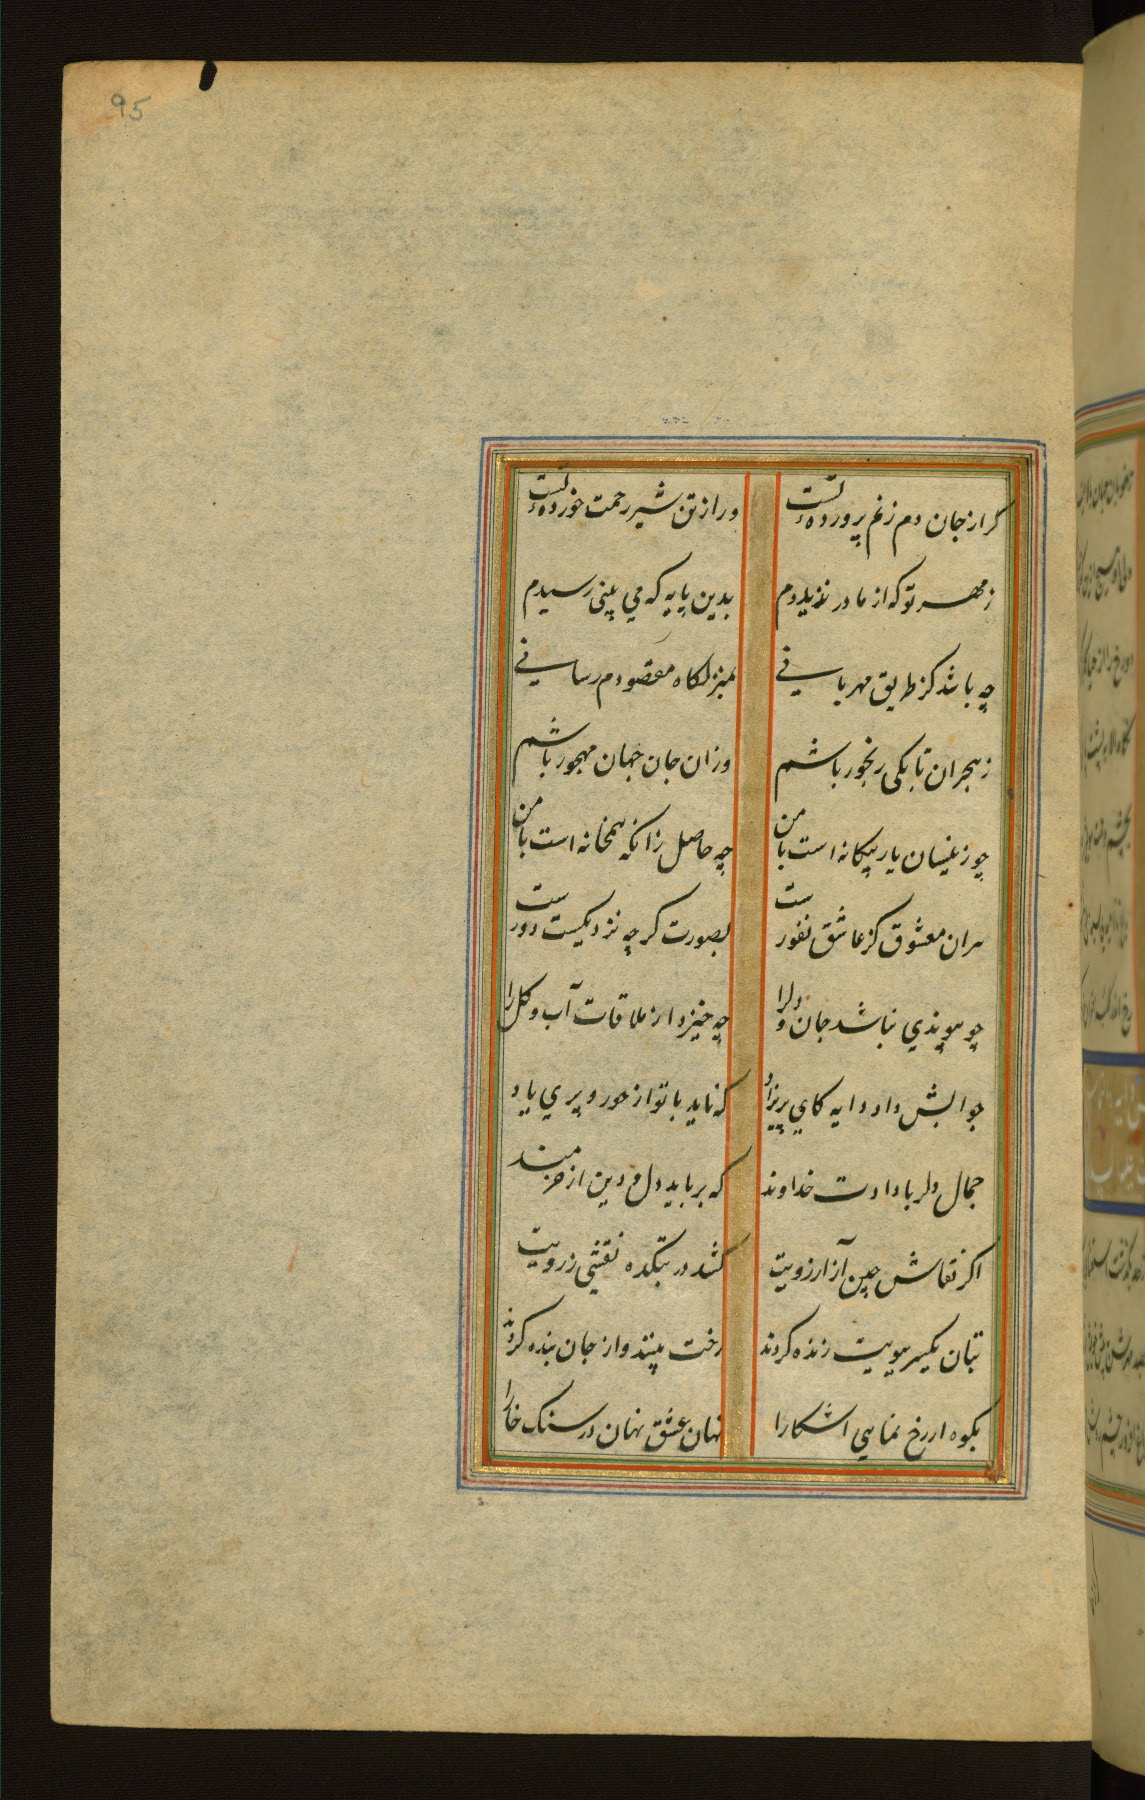 95
کر از جان دم زنم پروردهٔ تست ور از تن شیر رحمت خوردهٔ تست
ز مهر تو که از مادر ندیدم بدین پایه که می بینی رسیدم
چه باشد کز طریق مهربانی بمنزلکاه مقصودم رسانی
ز هجران تا بکی رنجور باشم وزان جان جهان مهجور باشم
چو زینسان یار بیکانه است با من چه حاصل زانکه همخانه است با من
بران معشوق کز عاشق نفورست بصورت کرچه نزدیکست دورست
چو پیوندی نباشد جان و دلرا چه خیزد از ملاقات آب و کل را
جوابش داد دایه کای پریزاد که ناید با تو از حور و پری یاد
جمال دلربا دادت خداوند که برباید دل و دین از خردمند
اکر نقاش چین آرد ز رویت کشد در بتکده نقشی ز رویت
بتان یکسر بپویت زنده کردند رخت بینند و از جان بنده کردند
بکوه ار رخ نمایی آشکارا نهان عشق نهان در سنک خارا